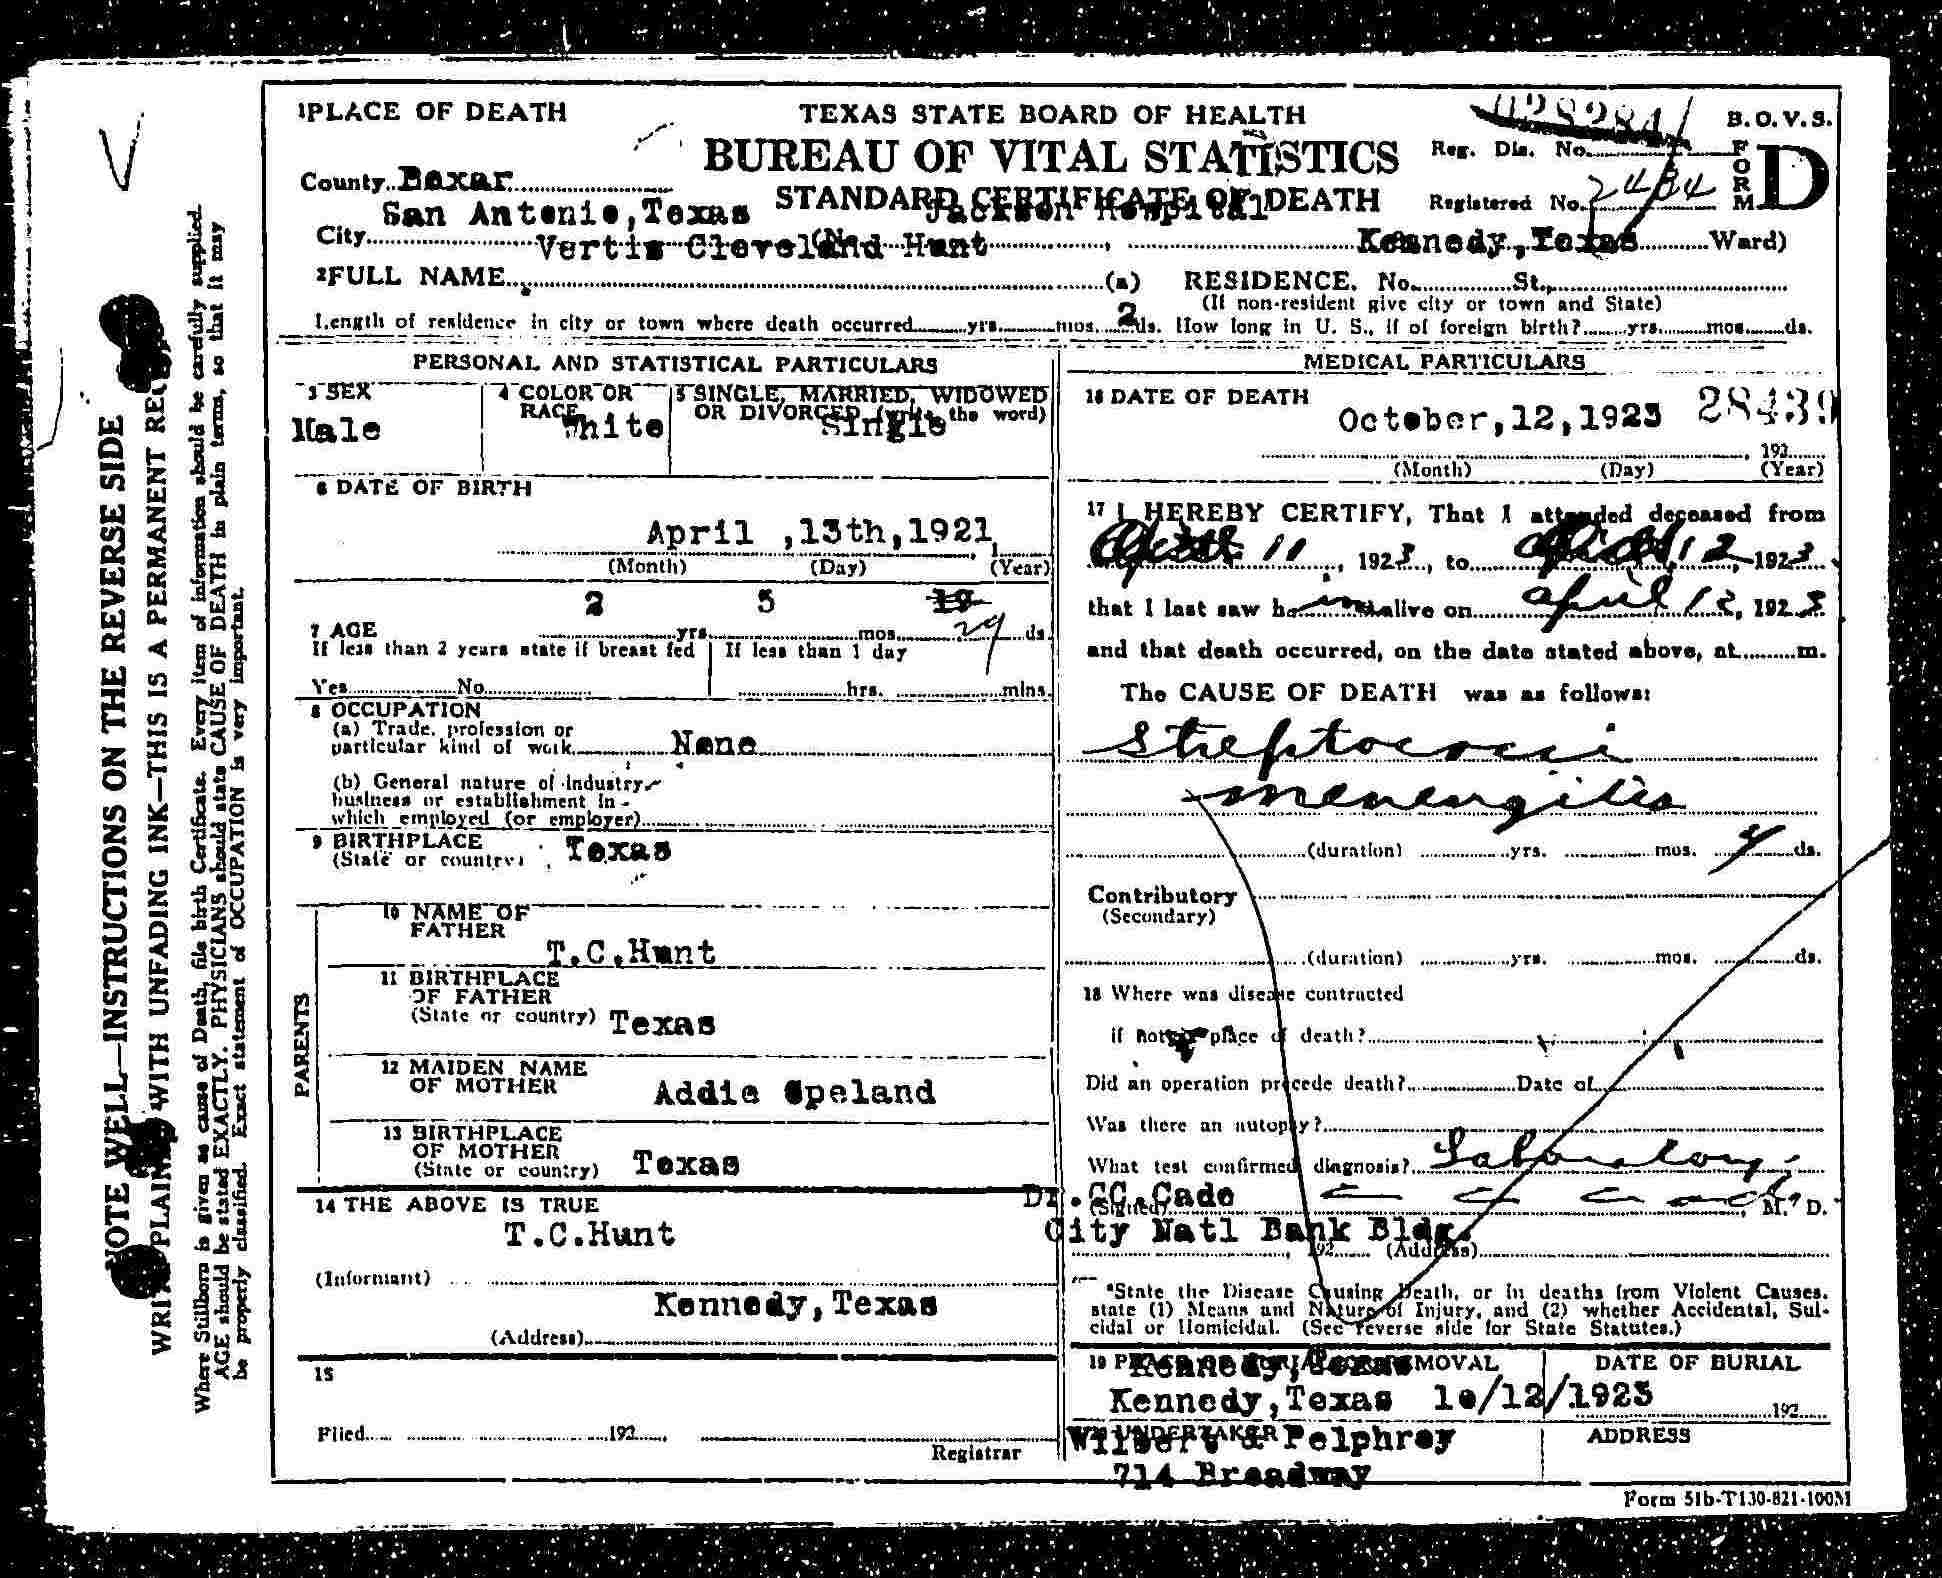 1 PLACE OF DEATH
TEXAS STATE BOARD OF HEALTH
B.O.V.S.
BUREAU OF VITAL STATISTICS
Reg. Dis. No.
County Bexar
STANDARD CERTIFICATE OF DEATH
Registered No. 2484
FORM D
San Antonio, Texas
Jackson Hospital
City (No. Ward)
Vertis Cleveland Hunt
Kennedy, Texas
2 FULL NAME (a) RESIDENCE. No. St.,
(If non-resident give city or town and State)
Length of residence in city or town where death occurred yrs. mos. 2 ds. How long in U. S., if of foreign birth? yrs. mos. ds.
PERSONAL AND STATISTICAL PARTICULARS
3 SEX
Male
4 COLOR OR RACE
White
5 SINGLE, MARRIED, WIDOWED
OR DIVORCED (write the word)
Single
6 DATE OF BIRTH
April ,13th,1921
(Month) (Day) (Year)
2 5 19
7 AGE yrs. mos. 29 ds.
If less than 2 years state if breast fed
If less than 1 day
Yes No
hrs. mins.
8 OCCUPATION
(a) Trade, profession or
particular kind of work None
(b) General nature of industry
business or establishment in
which employed (or employer)
9 BIRTHPLACE
(State or country) Texas
PARENTS
10 NAME OF
FATHER
T.C.Hunt
11 BIRTHPLACE
OF FATHER
(State or country) Texas
12 MAIDEN NAME
OF MOTHER Addie Opeland
13 BIRTHPLACE
OF MOTHER
(State or country) Texas
14 THE ABOVE IS TRUE
T.C.Hunt
(Informant)
Kennedy, Texas
(Address)
15
Filed 192
Registrar
MEDICAL PARTICULARS
16 DATE OF DEATH
October,12,1923 28439
192
(Month) (Day) (Year)
17 I HEREBY CERTIFY, That I attended deceased from
11, 1923, to 12, 1923
that I last saw him alive on april 12, 1923
and that death occurred, on the date stated above, at m.
The CAUSE OF DEATH was as follows:
Streptococci
menengitis
(duration) yrs. mos. 4 ds.
Contributory
(Secondary)
(duration) yrs. mos. ds.
18 Where was disease contracted
if not at place of death?
Did an operation precede death? Date of
Was there an autopsy?
What test confirmed diagnosis? Laboratory
Dr.CC.Cade
(Signed) C C Cade, M. D.
City Natl Bank Bldg.
192 (Address)
*State the Disease Causing Death, or in deaths from Violent Causes.
state (1) Means and Nature of Injury, and (2) whether Accidental, Sui-
cidal or Homicidal. (See reverse side for State Statutes.)
19 PLACE OF BURIAL OR REMOVAL
Kennedy, Texas
DATE OF BURIAL
Kennedy, Texas 10/12/1923
192
20 UNDERTAKER
Pelphrey
ADDRESS
714 Broadway
Form 51b-T130-821-100M
NOTE WELL—INSTRUCTIONS ON THE REVERSE SIDE
WRITE PLAINLY WITH UNFADING INK—THIS IS A PERMANENT RECORD
Where Stillborn is given as cause of Death, file birth Certificate. Every item of information should be carefully supplied.
AGE should be stated EXACTLY. PHYSICIANS should state CAUSE OF DEATH in plain terms, so that it may
be properly classified. Exact statement of OCCUPATION is very important.